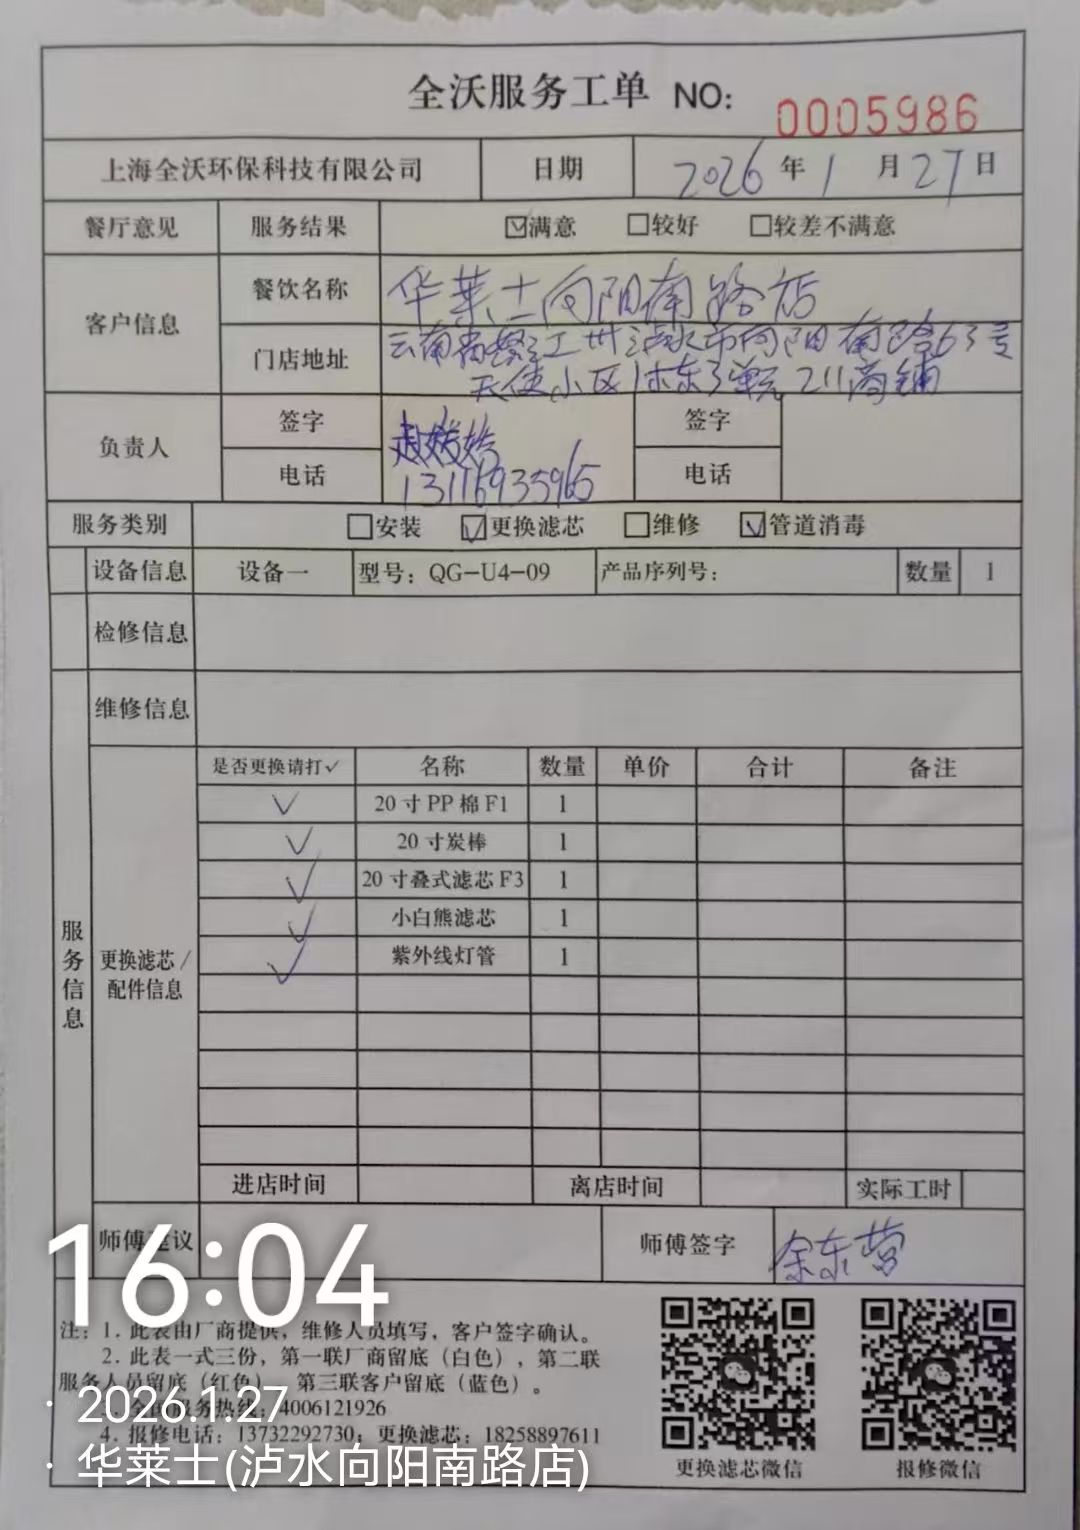 全沃服务工单 NO: 0005986
上海全沃环保科技有限公司 日期 2026年1月27日
餐厅意见 服务结果 ☑满意 □较好 □较差不满意
客户信息 餐饮名称 华莱士向阳南路店
门店地址 云南省怒江州泸水市向阳南路63号
天使小区1栋东3单元211商铺
负责人 签字 签字
电话 13116935965 电话
服务类别 □安装 ☑更换滤芯 □维修 ☑管道消毒
设备信息 设备一 型号：QG-U4-09 产品序列号： 数量 1
检修信息
维修信息
服务信息
更换滤芯/配件信息
是否更换请打✓ 名称 数量 单价 合计 备注
✓ 20寸PP棉F1 1
✓ 20寸炭棒 1
✓ 20寸叠式滤芯F3 1
✓ 小白熊滤芯 1
✓ 紫外线灯管 1
进店时间 离店时间 实际工时
师傅建议 师傅签字 余东营
16:04
注：1. 此表由厂商提供，维修人员填写，客户签字确认。
2. 此表一式三份，第一联厂商留底（白色），第二联
服务人员留底（红色），第三联客户留底（蓝色）。
服务热线：4006121926
4. 报修电话：13732292730；更换滤芯：18258897611
更换滤芯微信 报修微信
· 2026.1.27
· 华莱士(泸水向阳南路店)